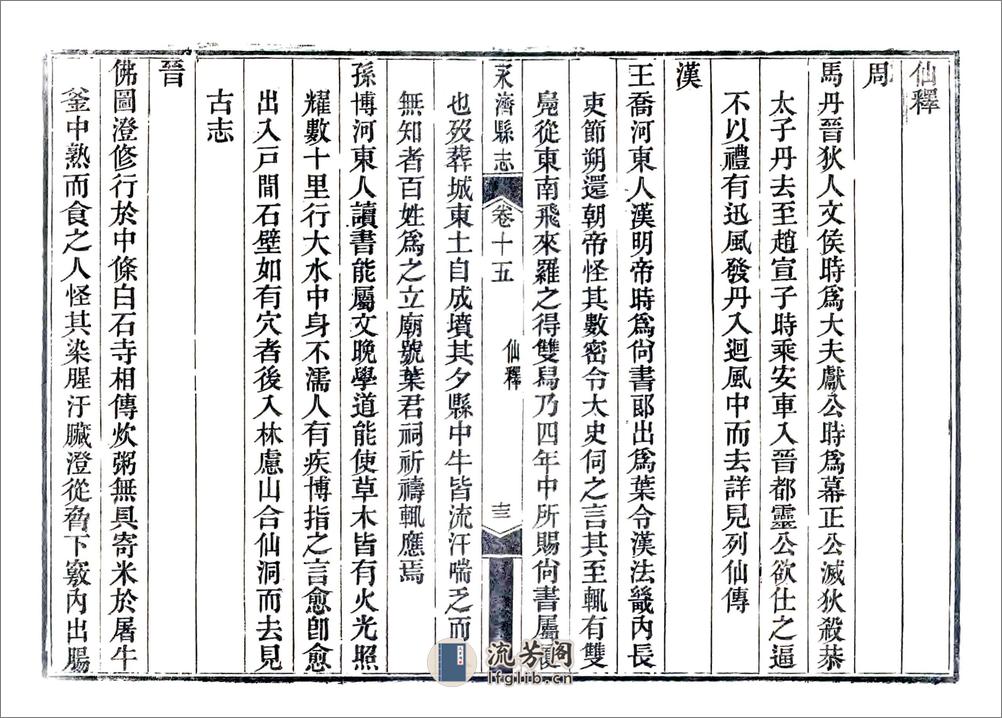 仙釋
周
馬丹晉狄人文侯時爲大夫獻公時爲幕正公滅狄殺恭
太子丹去至趙宣子時乘安車入晉都靈公欲仕之逼
不以禮有迅風發丹入迴風中而去詳見列仙傳
漢
王喬河東人漢明帝時爲尙書郞出爲葉令漢法畿內長
吏節朔還朝帝怪其數密令太史伺之言其至輒有雙
鳧從東南飛來羅之得雙舄乃四年中所賜尙書屬
永濟縣志 卷十五 仙釋 三
也歿葬城東土自成墳其夕縣中牛皆流汗喘乏而
無知者百姓爲之立廟號葉君祠祈禱輒應焉
孫博河東人讀書能屬文晚學道能使草木皆有火光照
耀數十里行大水中身不濡人有疾博指之言愈卽愈
出入戸間石壁如有穴者後入林慮山合仙洞而去見
古志
晉
佛圖澄修行於中條白石寺相傳炊粥無具寄米於屠牛
釜中熟而食之人怪其染腥汙臟澄從脅下竅內出腸
流芳阁
lfglib.cn